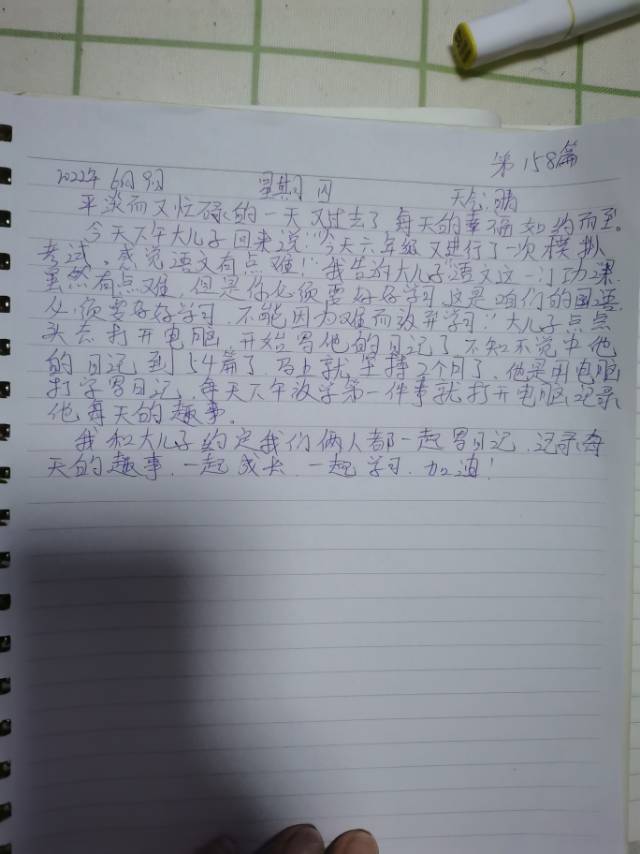 第158篇
2022年6月9日 星期四 天气:晴
平淡而又忙碌的一天又过去了每天的幸福如约而至。
今天下午大儿子回来说:"今天六年级又进行了一次模拟
考试。感觉语文有点难!"我告诉大儿子"语文这一门功课
虽然有点难,但是你必须要好好学习,这是咱们的国语
必须要好好学习,不能因为难而放弃学习!"大儿子点点
头去打开电脑,开始写他的日记了不知不觉中他
的日记到54篇了马上就坚持2个月了,他是用电脑
打字写日记,每天下午放学第一件事就打开电脑记录
他每天的趣事。
我和大儿子约定我们俩人都一起写日记,记录每
天的趣事,一起成长,一起学习,加油!